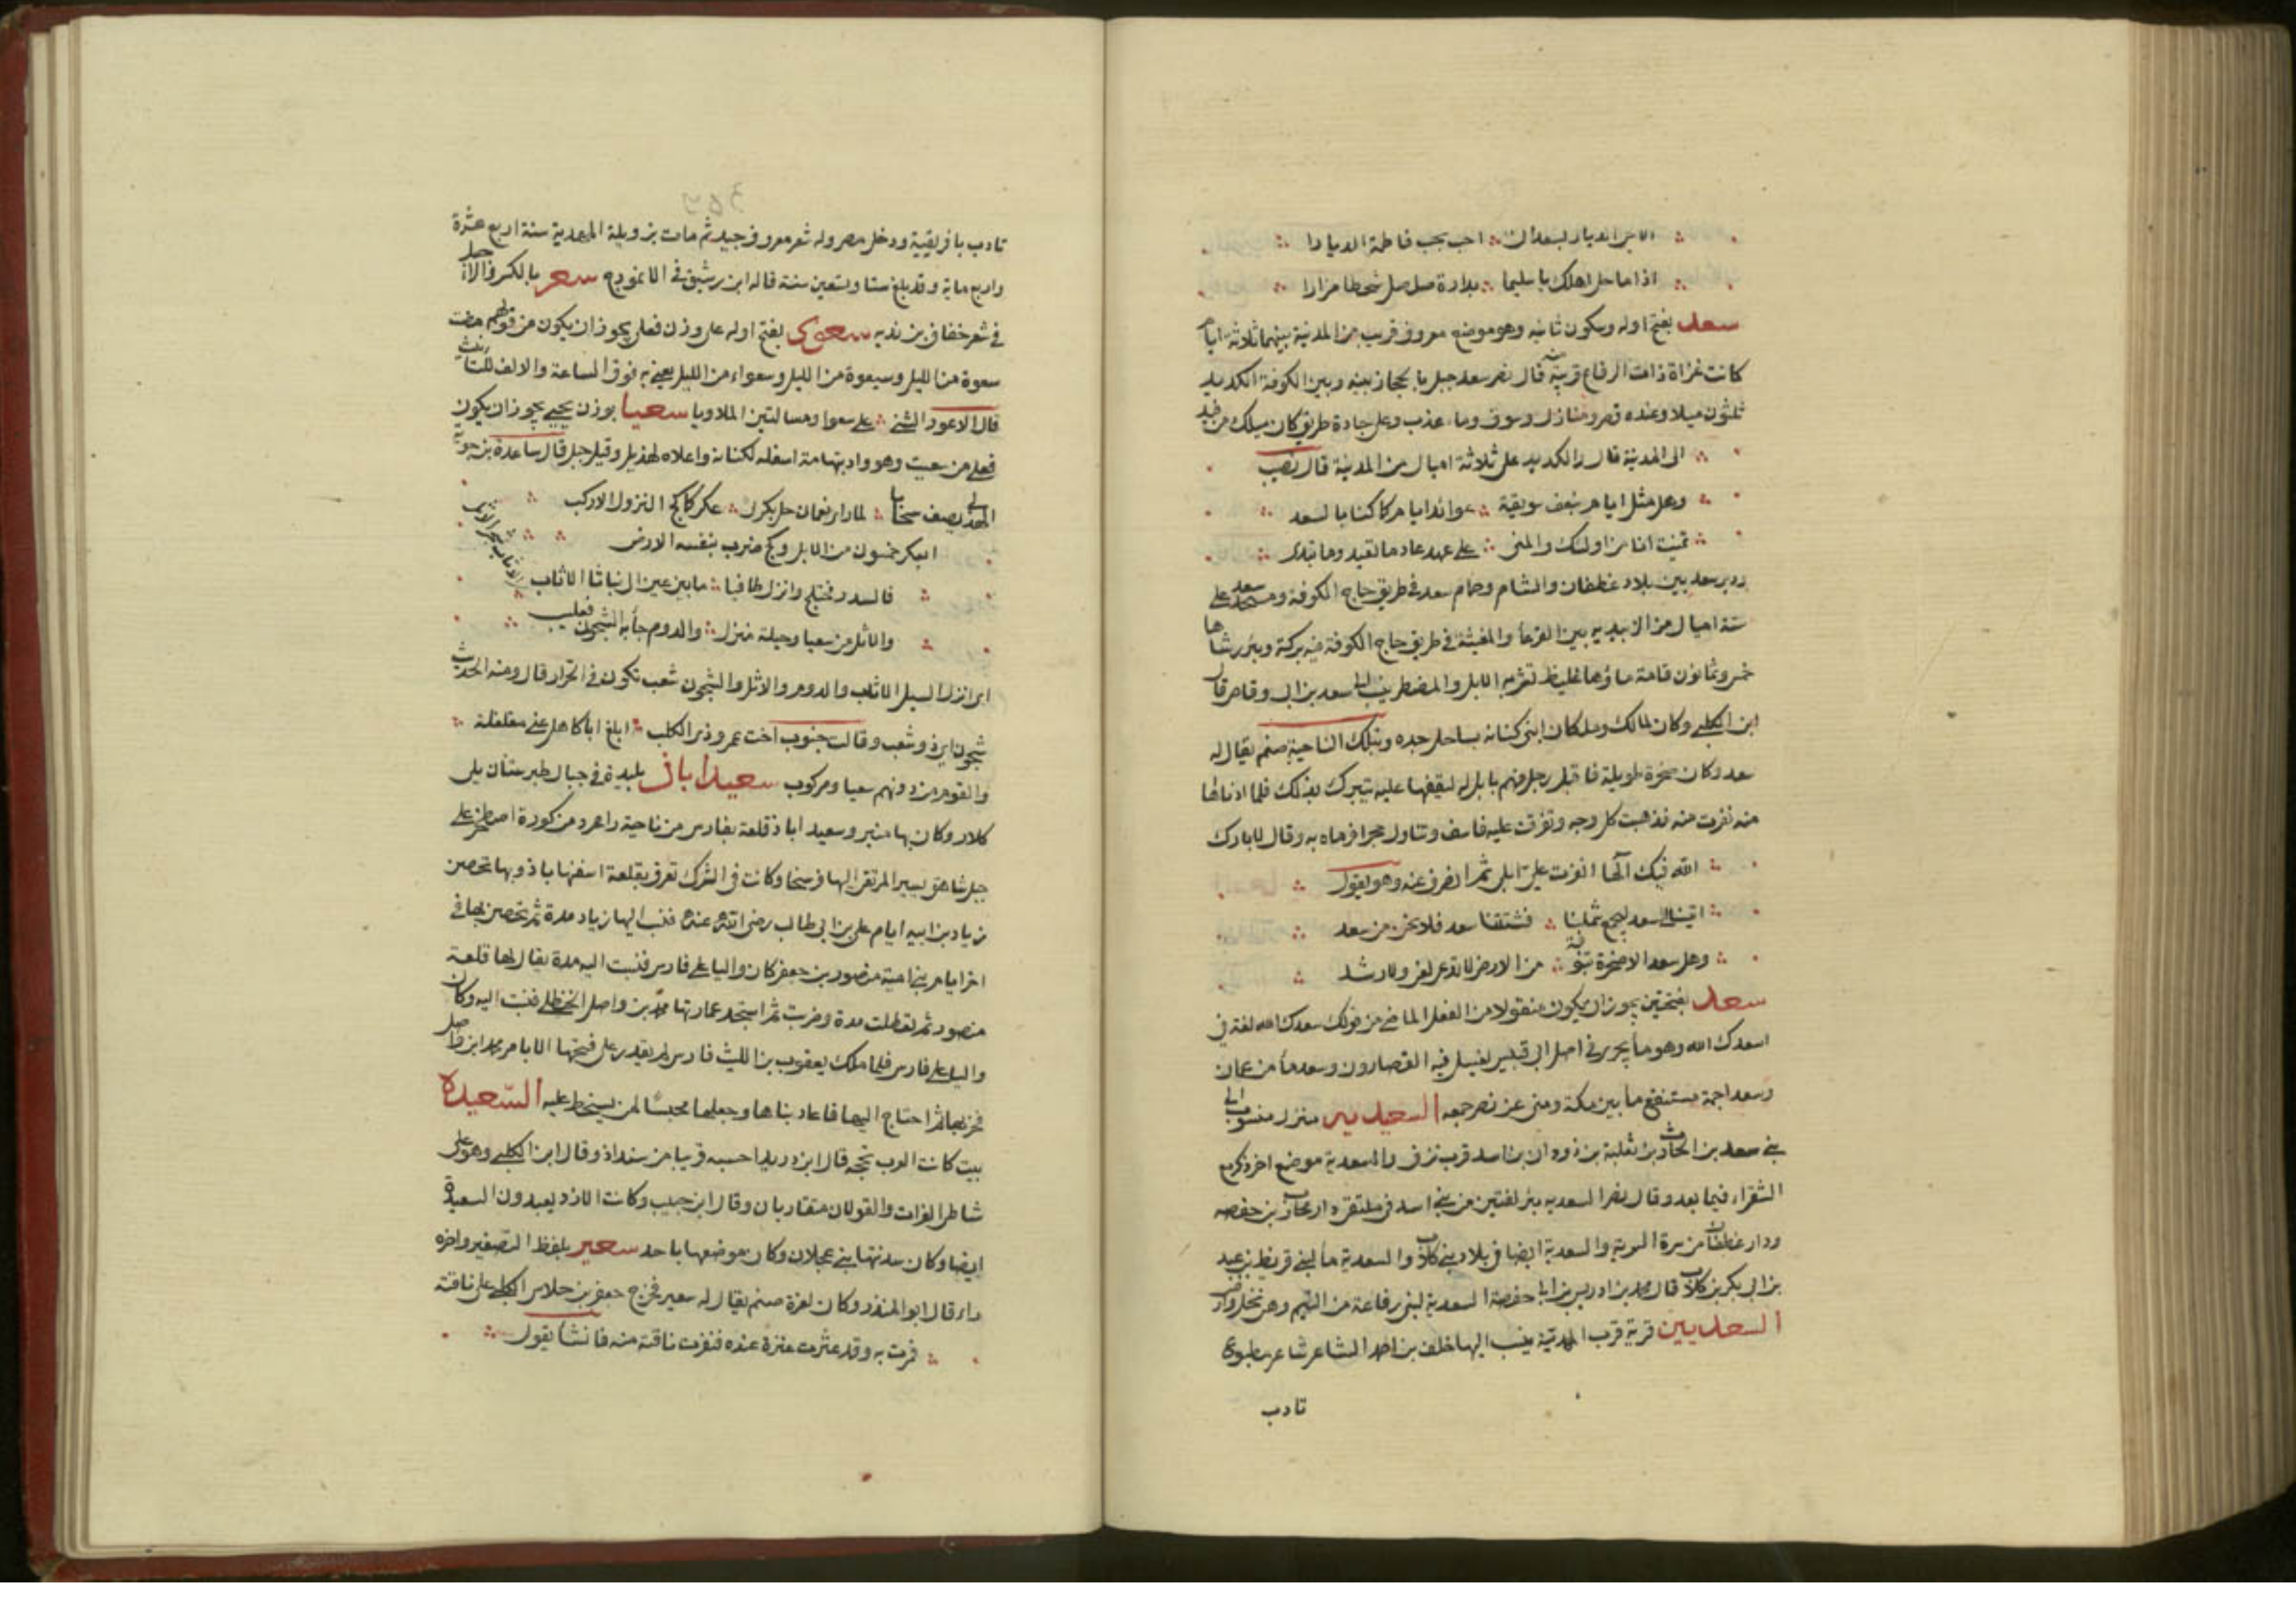 الا من الديار لسعدان احب بحب فاطمة الديارا
اذا ما حل اهلك يا سليما بدارة صلصل شحطا مزارا
سعد بفتح اوله وسكون ثانيه وهو موضع معروف قريب من المدينة بينهما ثلاثة ايام
كانت غزاة ذات الرقاع قريبة قال نصر سعد جبل بالحجاز بينه وبين الكوفة الكديد
ثلثون ميلا وعنده قصر ومنازل وسوق وماء عذب وعلى جادة طريق كان يسلك من فيد
الى المدينة قال والكديد على ثلاثة اميال من المدينة قال نصيب
وهل مثل ايام بنعف سويقة عوائد ايام كما كنا بالسعد
تمنيت انا من اولئك والمنى على عهد عاد ما نعيد وما نبدى
ودير سعد بين بلاد غطفان والشام وحمام سعد في طريق حاج الكوفة ومسجد سعد على
ستة اميال من الزبيدية بين القرعا والمغيثة في طريق حاج الكوفة فيه بركة وبئر رشاها
خمس وثمانون قامة ماؤها غليظ تشربه الابل والمضطر ينسب الى سعد بن ابى وقاص قال
ابن الكلبي وكان لمالك وملكان ابني كنانة بساحل جده وبتلك الناحية صنم يقال له
سعد وكان صخرة طويلة فاقبل رجل منهم بابل له ليقفها عليه يتبرك بذلك فلما ادناها
منه نفرت منه فذهبت كل وجه وتفرقت عليه فاسف وتناول حجرا فرماه به وقال لا بارك
الله فيك الها انفرت علي ابلى ثم انصرف عنه وهو يقول
اتينا الى سعد ليجمع شملنا فشتتنا سعد فلا نحن من سعد
وهل سعد الا صخرة بتنوفة من الارض لا تدعو لغي ولا رشد
سعد بفتحتين يجوز ان يكون منقولا من الفعل الماضي من قولك سعدك الله لغة في
اسعدك الله وهو ماء يجرى في اصل ابى قبيس يغسل فيه القصارون وسعد ماء من عمان
وسعد اجمة مستنقع ما بين مكة ومنى عن نصر جمعه السعديه منزل منسوب الى
بنى سعد بن الحارث بن ثعلبة بن ذودان بن اسد قرب نزف والسعدية موضع اخر ذكر مع
الشقراء فيما بعد وقال نصر السعديه بئر لفئتين من بني اسد في ملتقى دار محارب بن خصفه
ودار غطفان من سرة الربة والسعدية ايضا في بلاد بنى كلاب والسعدية ماء لبني قريظ بن عبد
بن ابى بكر بن كلاب قال محمد بن ادريس بن ابى حفصة السعدية لبنى رفاعة من التيم وهي نخل وارض
السعديين قرية قرب المهدية ينسب اليها خلف بن احمد الشاعر شاعر مطبوع
تادب
تادب بافريقية ودخل مصر وله شعر معروف جيد ثم مات بزويلة المهدية سنة اربع عشرة
واربع ماية وقد بلغ ستا وتسعين سنة قاله ابن رشيق في الانموذج سعر بالكسر والراء جبل
في شعر خفاف بن ندبه سعوى بفتح اوله على وزن فعلى يجوز ان يكون من قولهم مضت
سعوة من الليل وسيعوة من الليل وسعواء من الليل يعنى به فوق الساعة والالف للتانيث
قال الاعور الشنى على سعوا ومسالتين الملاويا سعيا بوزن يحيى يجوز ان يكون
فعلى من سعيت وهو واد بتهامة اسفله لكنانة واعلاه لهذيل وقيل جبل قال ساعدة بن جوية
الهذلى يصف سحابا لما راى نعمان حل بكرك عكر كما لبج النزول الاركب
العكر خمسون من الابل ولبج ضرب بنفسه الارض
فالسدر مختلج وانزل طافيا ما بين عين الى نباتا الاثاب الاثاب شجر الاثاب
والاثل من سعيا وحيلة منزل والدوم جاء به الشجون فعليب
اى انزل السيل الاثاب والدوم والاثل والشجون شعب تكون في الحرار قال ومنه الحديث
شجون اى ذو شعب وقالت جنوب اخت عمرو ذى الكلب ابلغ ابا كاهل عنى مغلغلة
والقوم من دونهم سعيا ومركوب سعيداباذ بليدة في جبال طبرستان يلى
كلار وكان بها منبر وسعيد اباذ قلعة بفارس من ناحية رامجرد من كورة اصطخر على
جبل شاهق يسير المرتقى اليها فرسخا وكانت في الشرك تعرف بقلعة اسفنهاباذ وبها تحصن
زياد بن ابيه ايام على بن ابى طالب رضى الله عنه فنسب اليها زياد مدة ثم تحصن بها في
اخر ايام بنى امية منصور بن جعفر كان واليا على فارس فنسبت اليه مدة يقال لها قلعة
منصور ثم تعطلت مدة وخربت ثم استجد عمارتها محمد بن واصل الحنظلى فنسبت اليه وكان
واليا على فارس فلما ملك يعقوب بن الليث فارس لم يقدر على فتحها الا بامر محمد ابن واصل
فخربها ثم احتاج اليها فاعاد بناها وجعلها محبسا لمن يسخط عليه السّعيدة
بيت كانت العرب تحجه قال ابن دريد احسبه قريبا من سنداد وقال ابن الكلبي وهو على
شاطى الفرات والقولان متقاربان وقال ابن حبيب وكانت الازد يعبدون السعيدة
ايضا وكان سدنتها بنى عجلان وكان موضعها باحد سعير بلفظ التصغير واخره
راء قال ابو المنذر وكان لعنزة صنم يقال له سعير فخرج جعفر بن خلاس الكلبى على ناقته
فمرت به وقد عثرت عنزة عنده فنفرت ناقته منه فانشا يقول